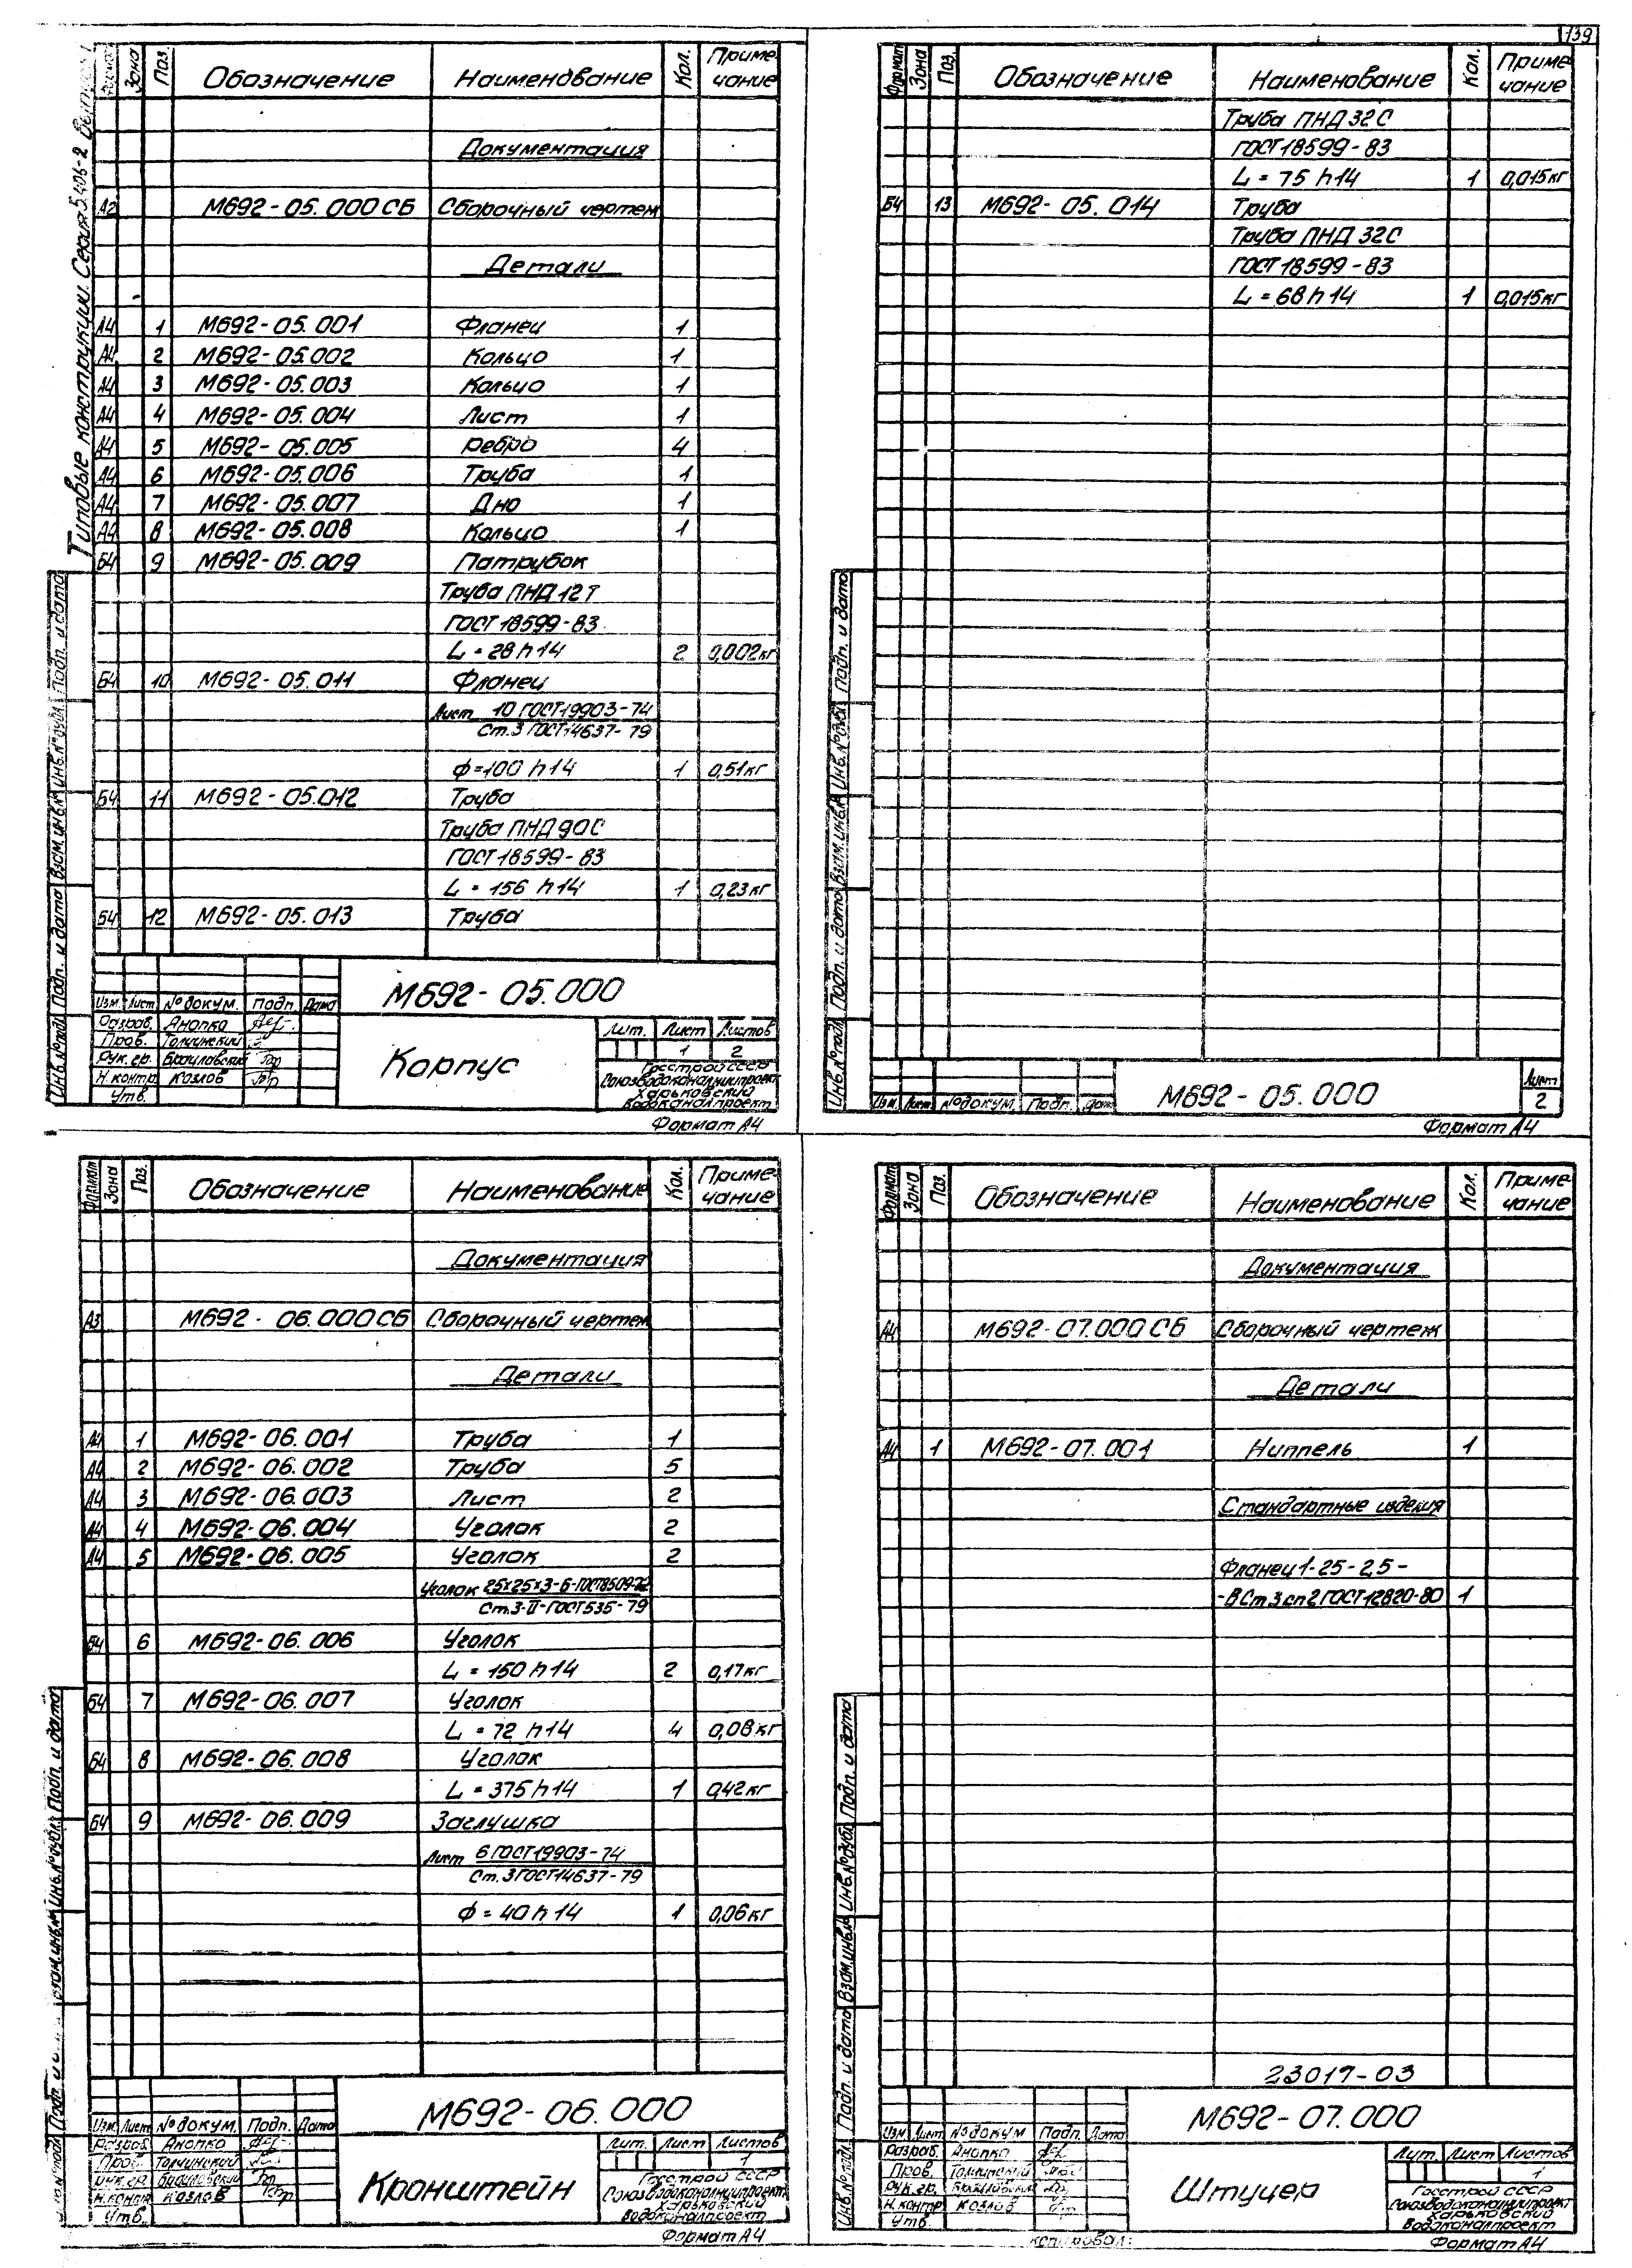 139
Типовые конструкции. Серия 5.406-2
Зона Поз. Обозначение Наименование Кол. Приме-
чание
Документация
А2 М692-05.000СБ Сборочный чертеж
Детали
А4 1 М692-05.001 Фланец 1
А4 2 М692-05.002 Кольцо 1
А4 3 М692-05.003 Кольцо 1
А4 4 М692-05.004 Лист 1
А4 5 М692-05.005 Ребро 4
А4 6 М692-05.006 Труба 1
А4 7 М692-05.007 Дно 1
А4 8 М692-05.008 Кольцо 1
Б4 9 М692-05.009 Патрубок
Труба ПНД 12Т
ГОСТ 18599-83
L = 28 h14 2 0,002кг
Б4 10 М692-05.011 Фланец
Лист 10 ГОСТ 19903-74
Ст.3 ГОСТ 14637-79
ф=100 h14 1 0,51кг
Б4 11 М692-05.012 Труба
Труба ПНД 90С
ГОСТ 18599-83
L = 156 h14 1 0,23кг
Б4 12 М692-05.013 Труба
Инв.№подл. Подп. и дата Взам.инв.№ Инв.№дубл. Подп. и дата
М692-05.000
Изм. Лист №докум. Подп. Дата
Разраб. Анопко
Пров. Толчинский
Рук.гр. Браиловский
Н.контр. Козлов
Утв.
Корпус
Лит. Лист Листов
1 2
Госстрой СССР
Союзводоканалниипроект
Харьковский
Водоканалпроект
Формат А4
Формат Зона Поз. Обозначение Наименование Кол. Приме-
чание
Труба ПНД 32С
ГОСТ 18599-83
L = 75 h14 1 0,015кг
Б4 13 М692-05.014 Труба
Труба ПНД 32С
ГОСТ 18599-83
L = 68 h14 1 0,015кг
Инв.№подл. Подп. и дата Взам.инв.№ Инв.№дубл. Подп. и дата
Изм. Лист №докум. Подп. Дата
М692-05.000
Лист
2
Формат А4
Формат Зона Поз. Обозначение Наименование Кол. Приме-
чание
Документация
А3 М692-06.000СБ Сборочный чертеж
Детали
А4 1 М692-06.001 Труба 1
А4 2 М692-06.002 Труба 5
А4 3 М692-06.003 Лист 2
А4 4 М692-06.004 Уголок 2
А4 5 М692-06.005 Уголок 2
Уголок 25х25х3-Б-ГОСТ8509-72
Ст.3-II-ГОСТ535-79
Б4 6 М692-06.006 Уголок
L = 150 h14 2 0,17кг
Б4 7 М692-06.007 Уголок
L = 72 h14 4 0,08кг
Б4 8 М692-06.008 Уголок
L = 375 h14 1 0,42кг
Б4 9 М692-06.009 Заглушка
Лист 6 ГОСТ 19903-74
Ст.3 ГОСТ 14637-79
ф = 40 h14 1 0,06кг
М692-06.000
Изм. Лист №докум. Подп. Дата
Разраб. Анопко
Пров. Толчинский
Рук.гр. Браиловский
Н.контр. Козлов
Утв.
Кронштейн
Лит. Лист Листов
1
Госстрой СССР
Союзводоканалниипроект
Харьковский
Водоканалпроект
Формат А4
Формат Зона Поз. Обозначение Наименование Кол. Приме-
чание
Документация
А4 М692-07.000СБ Сборочный чертеж
Детали
А4 1 М692-07.001 Ниппель 1
Стандартные изделия
Фланец 1-25-2,5-
-ВСт3сп2 ГОСТ 12820-80 1
23017-03
Инв.№подл. Подп. и дата Взам.инв.№ Инв.№дубл. Подп. и дата
М692-07.000
Изм. Лист №докум. Подп. Дата
Разраб. Анопко
Пров. Толчинский
Рук.гр. Браиловский
Н.контр. Козлов
Утв.
Штуцер
Лит. Лист Листов
1
Госстрой СССР
Союзводоканалниипроект
Харьковский
Водоканалпроект
Копировал:
Формат А4